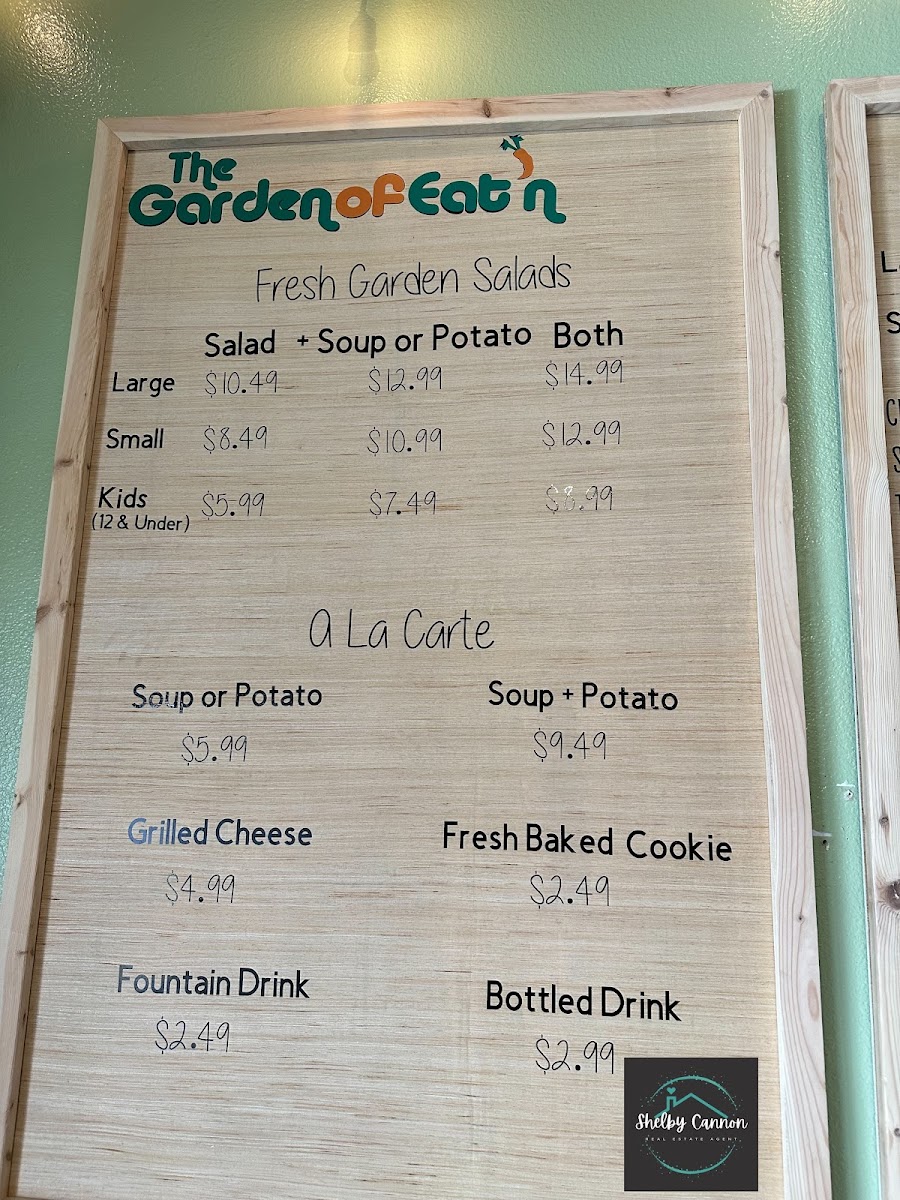 The
Garden of Eat'n
Fresh Garden Salads
Salad + Soup or Potato Both
Large $10.49 $12.99 $14.99
Small $8.49 $10.99 $12.99
Kids $5.99 $7.49 $8.99
(12 & Under)
A La Carte
Soup or Potato Soup + Potato
$5.99 $9.49
Grilled Cheese Fresh Baked Cookie
$4.99 $2.49
Fountain Drink Bottled Drink
$2.49 $2.99
Shelby Cannon
REAL ESTATE AGENT